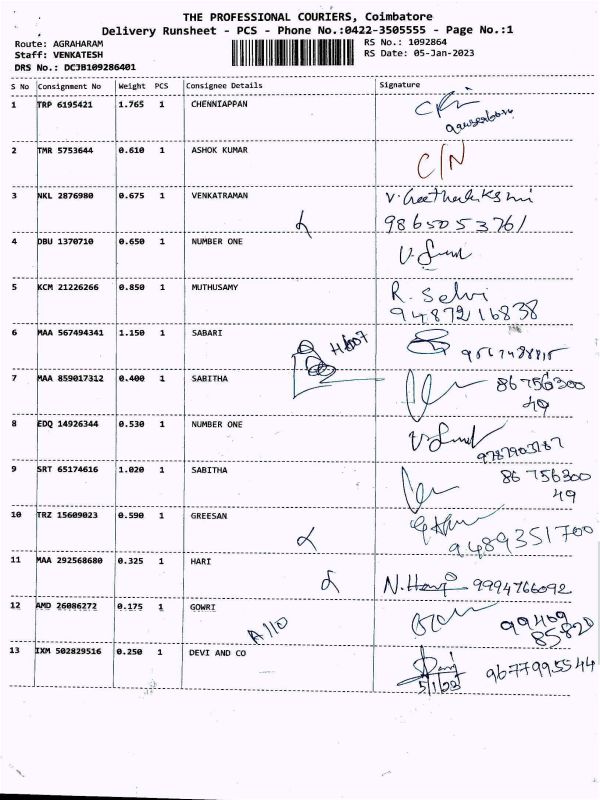 THE PROFESSIONAL COURIERS, Coimbatore
Delivery Runsheet - PCS - Phone No.:0422-3505555 - Page No.:1
Route: AGRAHARAM RS No.: 1092864
Staff: VENKATESH RS Date: 05-Jan-2023
DRS No.: DCJB109286401
S No Consignment No Weight PCS Consignee Details Signature
1 TRP 6195421 1.765 1 CHENNIAPPAN
2 TMR 5753644 0.610 1 ASHOK KUMAR C/N
3 NKL 2876980 0.675 1 VENKATRAMAN V. Geethalakshmi
9865053761
4 DBU 1370710 0.650 1 NUMBER ONE
5 KCM 21226266 0.850 1 MUTHUSAMY R. Selvi
9487216838
6 MAA 567494341 1.150 1 SABARI
H607
7 MAA 859017312 0.400 1 SABITHA 86756300
49
8 EDQ 14926344 0.530 1 NUMBER ONE
9 SRT 65174616 1.020 1 SABITHA 86756300
49
10 TRZ 15609023 0.590 1 GREESAN
9489351700
11 MAA 292568680 0.325 1 HARI N. Hari 9994766092
12 AMD 26086272 0.175 1 GOWRI 99409
85820
A110
13 IXM 502829516 0.250 1 DEVI AND CO 9677995544
5/1/23